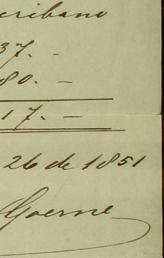 cribano
37. -
80. -
17. -
26 de 1851
Goerne